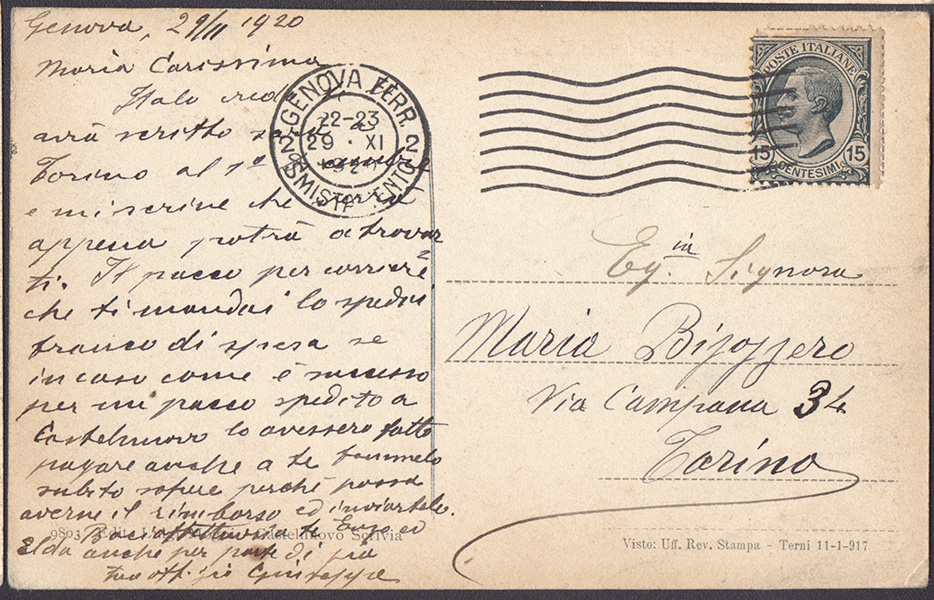 Genova, 29/11 1920
Maria Carissima
Italo
avrà scritto sarà
Torino al 1°
e mi scrive che verrà
appena potrà a trovar
ti. Il pacco per corriere
che ti mandai lo spedii
franco di spesa se
in caso come è successo
per un pacco spedito a
Castelnuovo lo avessero fatto
pagare anche a te fammelo
subito sapere perché possa
averne il rimborso ed inviartelo.
Baci a te Enzo ed
Elda anche per parte di
tuo Giuseppe
9803 Edit. Castelnuovo Scrivia
GENOVA FERR.
22-23
29 · XI
2 2
SMISTAMENTO
POSTE ITALIANE
15 15
CENTESIMI
Eg.ia Signora
Maria Bizozzero
Via Campana 34
Torino
Visto: Uff. Rev. Stampa - Terni 11-1-917